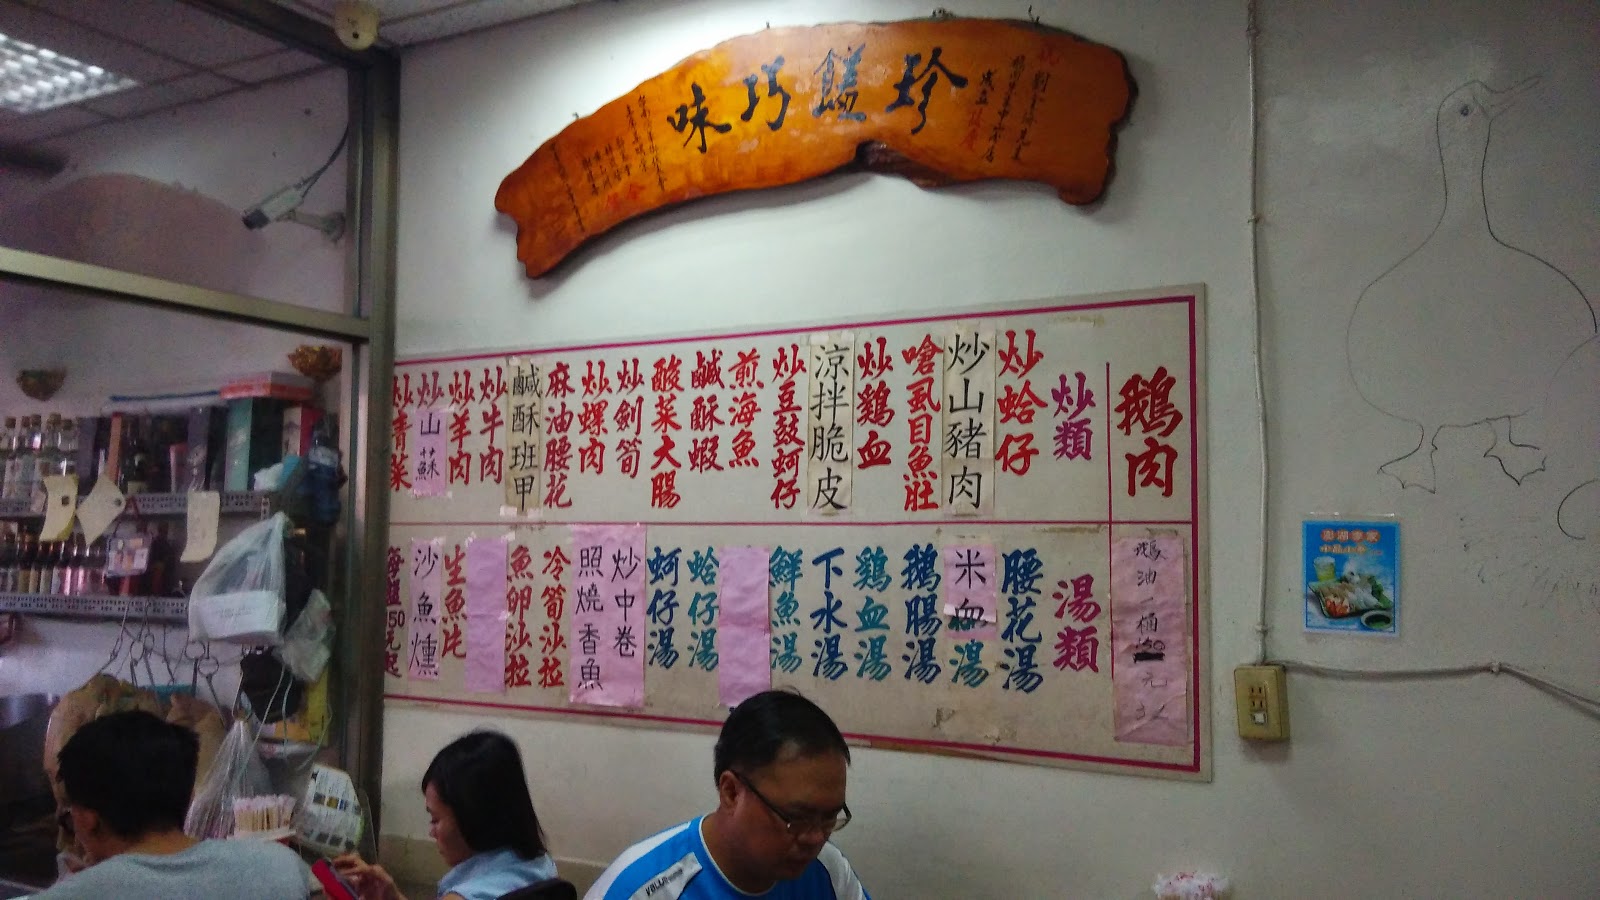 珍饈巧味
祝
鵝肉
炒類
炒蛤仔
炒山豬肉
嗆虱目魚肚
炒鷄血
涼拌脆皮
炒豆鼓蚵仔
煎海魚
鹹酥蝦
酸菜大腸
炒劍筍
炒螺肉
麻油腰花
鹹酥班甲
炒牛肉
炒羊肉
炒山蘇
炒青菜
湯類
腰花湯
米血湯
鵝腸湯
鷄血湯
下水湯
鮮魚湯
蛤仔湯
蚵仔湯
炒中卷
照燒香魚
冷筍沙拉
魚卵沙拉
生魚片
沙魚燻
50元起
鵝油一桶
元